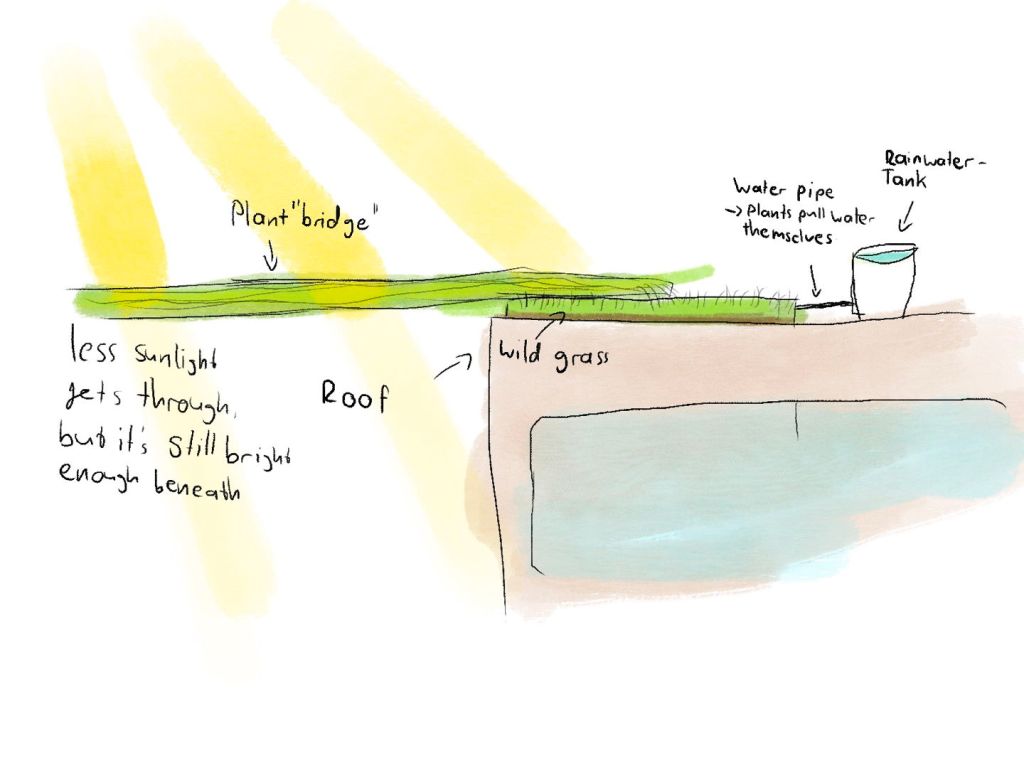 Rainwater-
Tank
Water pipe
-> Plants pull water
themselves
Plant "bridge"
wild grass
Roof
less sunlight
gets through,
but it's still bright
enough beneath